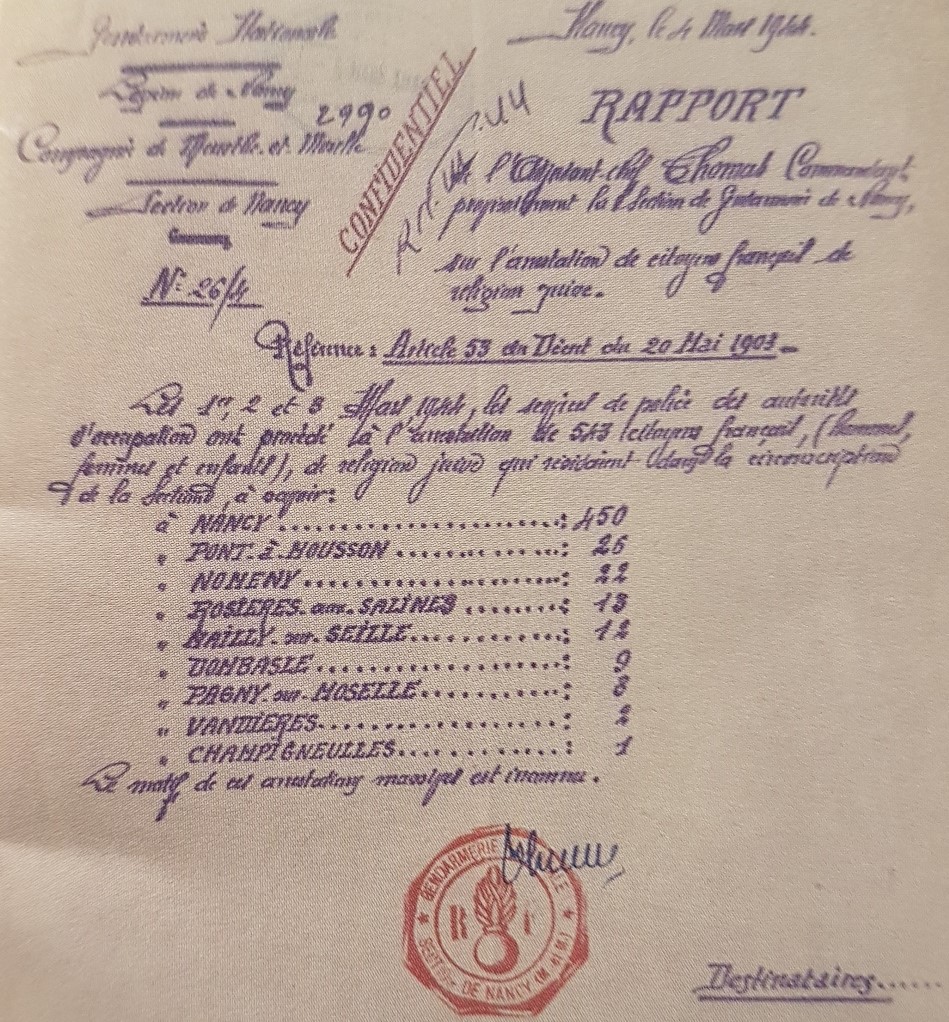 Gendarmerie Nationale
Nancy, le 4 Mars 1944.
Légion de Nancy
2990
Compagnie de Meurthe-et-Moselle
Section de Nancy
N° 26/4
CONFIDENTIEL
RAPPORT
de l'Adjudant-chef Thomas Commandant
provisoirement la Section de Gendarmerie de Nancy,
sur l'arrestation de citoyens français de
religion juive.
Référence : Article 53 du Décret du 20 Mai 1903.-
Les 1er, 2 et 3 Mars 1944, les services de police des autorités
d'occupation ont procédé à l'arrestation de 543 citoyens français, (hommes,
femmes et enfants), de religion juive qui résidaient dans la circonscription
de la Section, à savoir :
à NANCY ........................: 450
" PONT-à-MOUSSON ...............: 26
" NOMENY........................: 22
" ROSIERES-aux-SALINES .........: 13
" MAILLY-sur-SEILLE.............: 12
" DOMBASLE......................: 9
" PAGNY-sur-MOSELLE.............: 8
" VANDIERES.....................: 2
" CHAMPIGNEULLES................: 1
Le motif de ces arrestations massives est inconnu.
GENDARMERIE
R F
SECTION DE NANCY (M. et M.)
Destinataires......